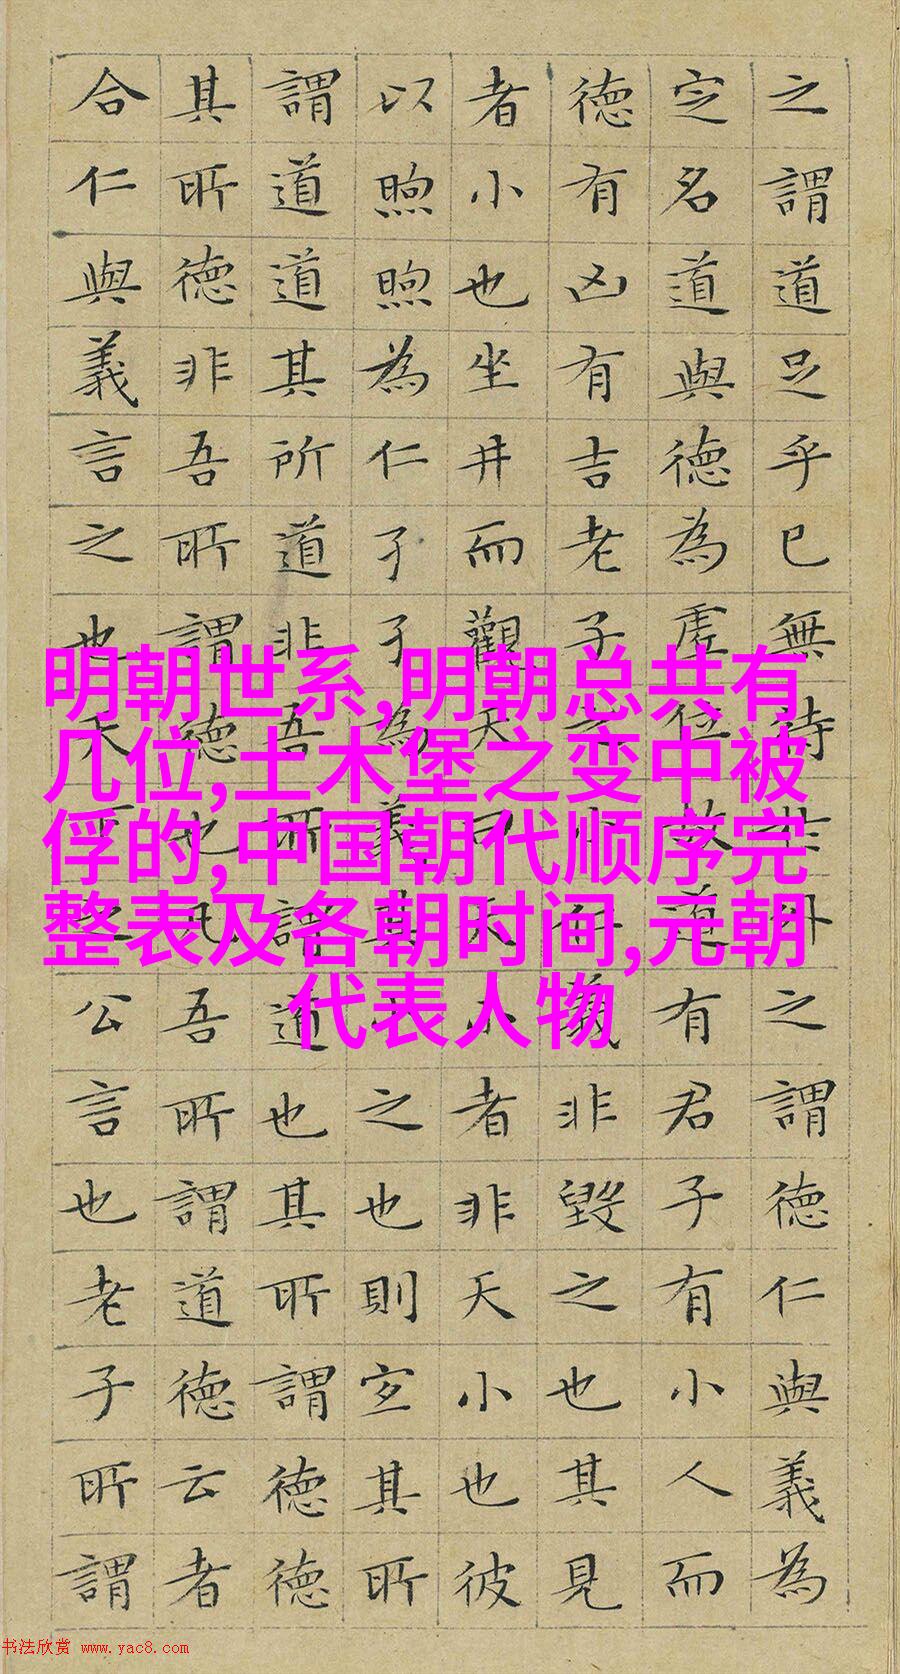 之謂道足乎已無待於外之謂德仁與義為
定名道與德為虛位故道有君子有小人而
德有凶有吉老子之小仁義非毀之也其見
者小也坐井而觀天曰天小者非天小也彼
以煦煦為仁孑孑為義其小之也則宜其所
謂道道其所道非吾所謂道也其所謂德德
其所德非吾所謂德也凡吾所謂道德云者
合仁與義言之也天下之公言也老子所謂
明朝世系,明朝总共有
几位,土木堡之变中被
俘的,中国朝代顺序完
整表及各朝时间,元朝
代表人物
书法欣赏 www.yac8.com